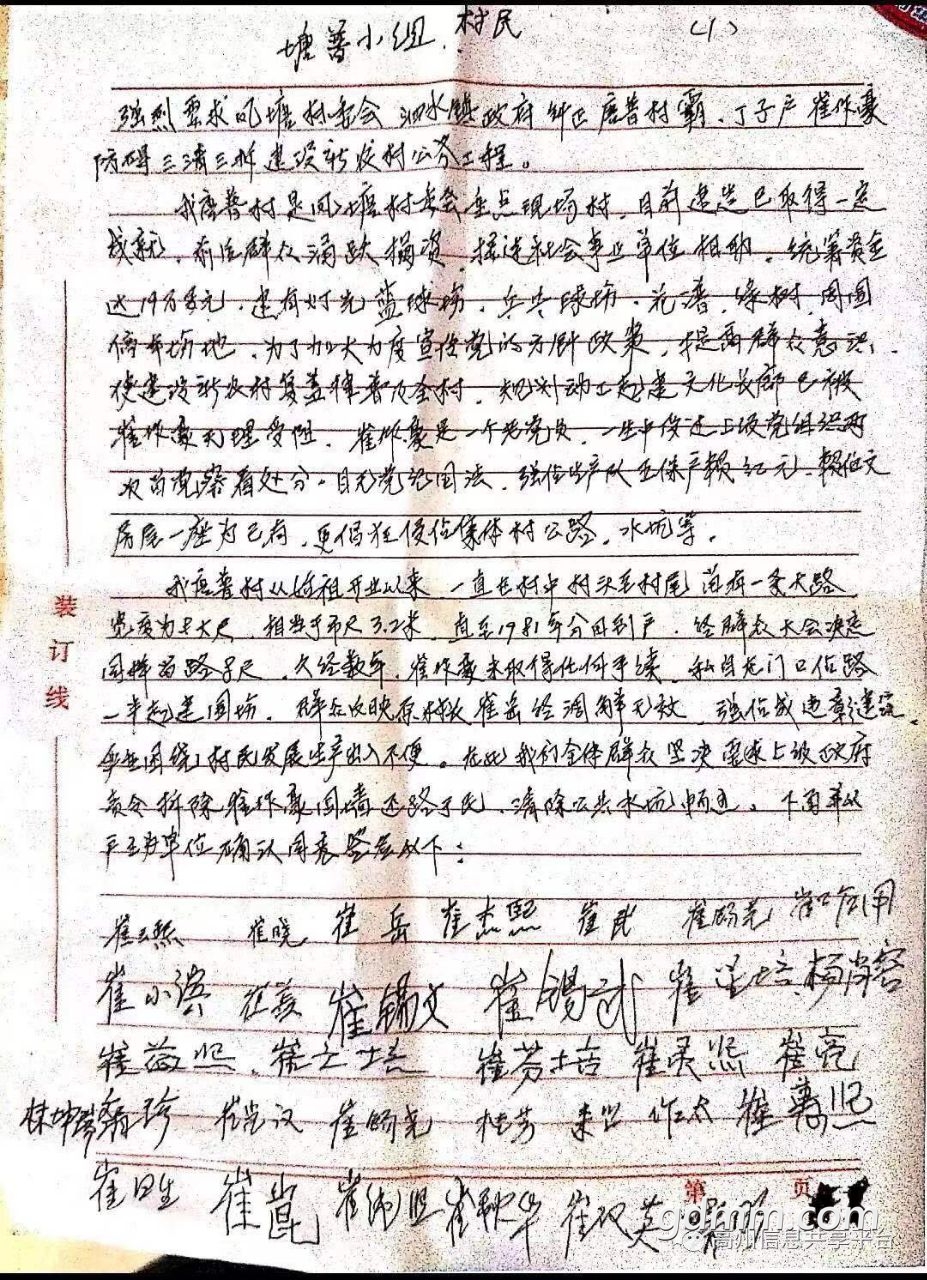 塘普小组.村民 (1)
强烈要求 塘村委会 泗水镇政府纠正唐普村霸、丁子户崔作豪
防碍三清三拆建设新农村公务工程。
我唐普村是 塘村委会重点现场村,目前建造已取得一定
成就,前段群众涌跃捐资,接连社会事业单位相助,统筹资金
达19万多元,建有灯光蓝球场,乒乓球场,花,绿树,周围
停车场地,为了加大力度宣传党的方针政策,提高群众意识,
使建设新农村复盖律普及全村,规划动工起建文化长廊已被
崔作豪无理受阻,崔作豪是一个老党员,一生中受过上级党组织两
次留党察看处分。目无党纪国法,强佔生产队五保户赖记元,赖伯文
房屋一座为己有,更倡狂侵佔集体村公路,水坑等。
我唐普村从始祖开业以来,一直在村中村头至村尾留有一条大路
宽度为 大尺,相当于市尺3.2米,直至1981年分田到户,经群众大会决定
同样留路 尺,久经数年,崔作豪未取得任何手续,私自在门口佔路
一半起建围场,群众反映原村长崔岳经调解无效,强佔成违章建筑
村民发展生产出入不便。在此我们全体群众坚决要求上级政府
责令拆除崔作豪围墙还路于民,清除公共水坑畅通。下面单以
户主为单位确认同意签名以下:
崔 崔晓 崔岳 崔杰熙 崔武 崔锡尧
崔小洪 崔锡文 崔锡武 崔 培 杨
崔 熙 崔立培 崔芳培 崔灵熙 崔亮
林坤 珍 崔光汉 崔锡尧 桂芳 作太 崔万熙
崔日生 崔昆 崔 熙 崔秋华 崔汉英
装
订
线
第 页
gdmm.com
高州信息共享平台